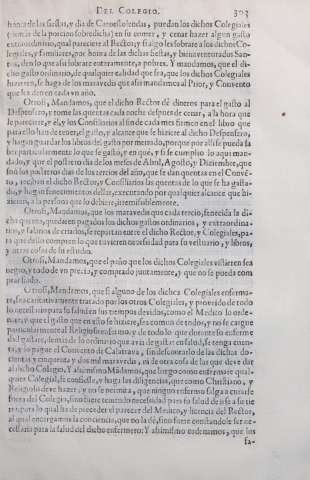 DEL COLEGIO. 303
honra de las fiestas, y dia de Carnestolendas, puedan los dichos Colegiales
(demas de la porcion sobredicha) en su comer, y cenar hazer algun gasto
extraordinario, qual pareciere al Rector; y si algo les sobrare a los dichos Co-
legiales, y familiares, por honra de las dichas fiestas, y bienaventurados San-
tos, den lo que assi sobrare enteramente, a pobres. Y mandamos, que el di-
cho gasto ordinario, de qualquier calidad que sea, que los dichos Colegiales
hizieren, se haga de los maravedis que assi mandamos al Prior, y Convento
que les den en cada vn año.
Otrosi, Mandamos, que el dicho Rector dè dineros para el gasto al
Despensero, y tome las quentas cada noche despues de cenar, a la hora que
le pareciere, y el, y los Consiliarios al fin de cada mes firmen en el libro que
para ello han de tener, el gasto, y alcance que se hiziere al dicho Despensero,
y hagan guardar los libros del gasto por menudo, porque por alli se pueda sa
ber particularmente lo que se gasta, y en què, y si se cumple lo aqui man-
dado, y que el postrero dia de los meses de Abril, Agosto, y Diziembre, que
son los postreros dias de los tercios del año, que se dan quentas en el Conve-
to, reciben el dicho Rector, y Consiliarios las quentas de lo que se ha gasta-
do, y hagan fenecimiento dellas, executando por qualquier alcance que hi-
zieren, a la persona que lo debiere, irremissiblemente.
Otrosi, Mandamos, que los maravedis que cada tercio, fenecida la di-
cha quenta, quedaren pagados los dichos gastos ordinarios, y extraordina-
rios, y salarios de criados, se repartan entre el dicho Rector, y Colegiales, pa-
ra que dello compren lo que tuvieren necessidad para su vestuario, y libros,
y otras cosas de su estudio.
Otrosi, Mandamos, que el paño que los dichos Colegiales vistieren sea
negro, y todo de vn precio, y comprado juntamente, y que no se pueda com
prar fiado.
Otrosi, Mandamos, que si alguno de los dichos Colegiales enferma-
re, sea caritativamente tratado por los otros Colegiales, y proveido de todo
lo necessario para su salud en sus tiempos devidos, como el Medico lo orde-
nare; y que el gasto que en ello se hiziere, sea comun de todos, y no se cargue
particularmente al Religioso enfermo, y de todo lo que durante su enferme
dad gastare, demàs de lo ordinario que avia de gastar en salud, se tenga cuen-
ta, y lo pague el Convento de Calatrava, sin descontarlo de las dichas do-
cientas y cinquenta y dos mil maravedis, ni de otra cosa de las que deve dar
al dicho Colegio. Y assimismo Mãdamos, que luego como enfermare qual-
quier Colegial, se confiesse, y haga las diligencias, que como Christiano, y
Religioso deve hazer; y no se permita, que ningun enfermo salga a curarse
fuera del Colegio, sino fuere teniendo necessidad para su salud de irse a su tie
rra, para lo qual ha de preceder el parecer del Medico, y licencia del Rector,
al qual encargamos la conciencia, que no la dè, sino fuere entendiendo ser ne-
cessaria para la salud del dicho enfermero: Y assimismo ordenamos, que los
fa-